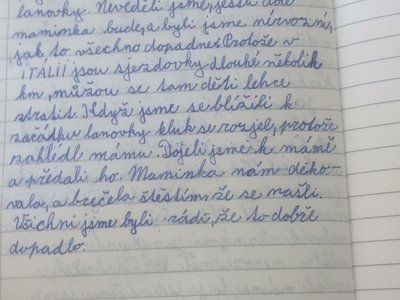 lanovky. Nevěděli jsme, jestli dole
maminka bude, a byli jsme nervozní,
jak to všechno dopadne. Protože v
ITÁLII jsou sjezdovky dlouhé několik
km, můžou se tam děti lehce
ztratit. Když jsme se blížili k
začátku lanovky kluk se rozjel, protože
zahlédl mámu. Dojeli jsme k mámě
a předali ho. Maminka nám děko-
vala, a brečela štěstím, že se našli.
Všichni jsme byli rádi, že to dobře
dopadlo.